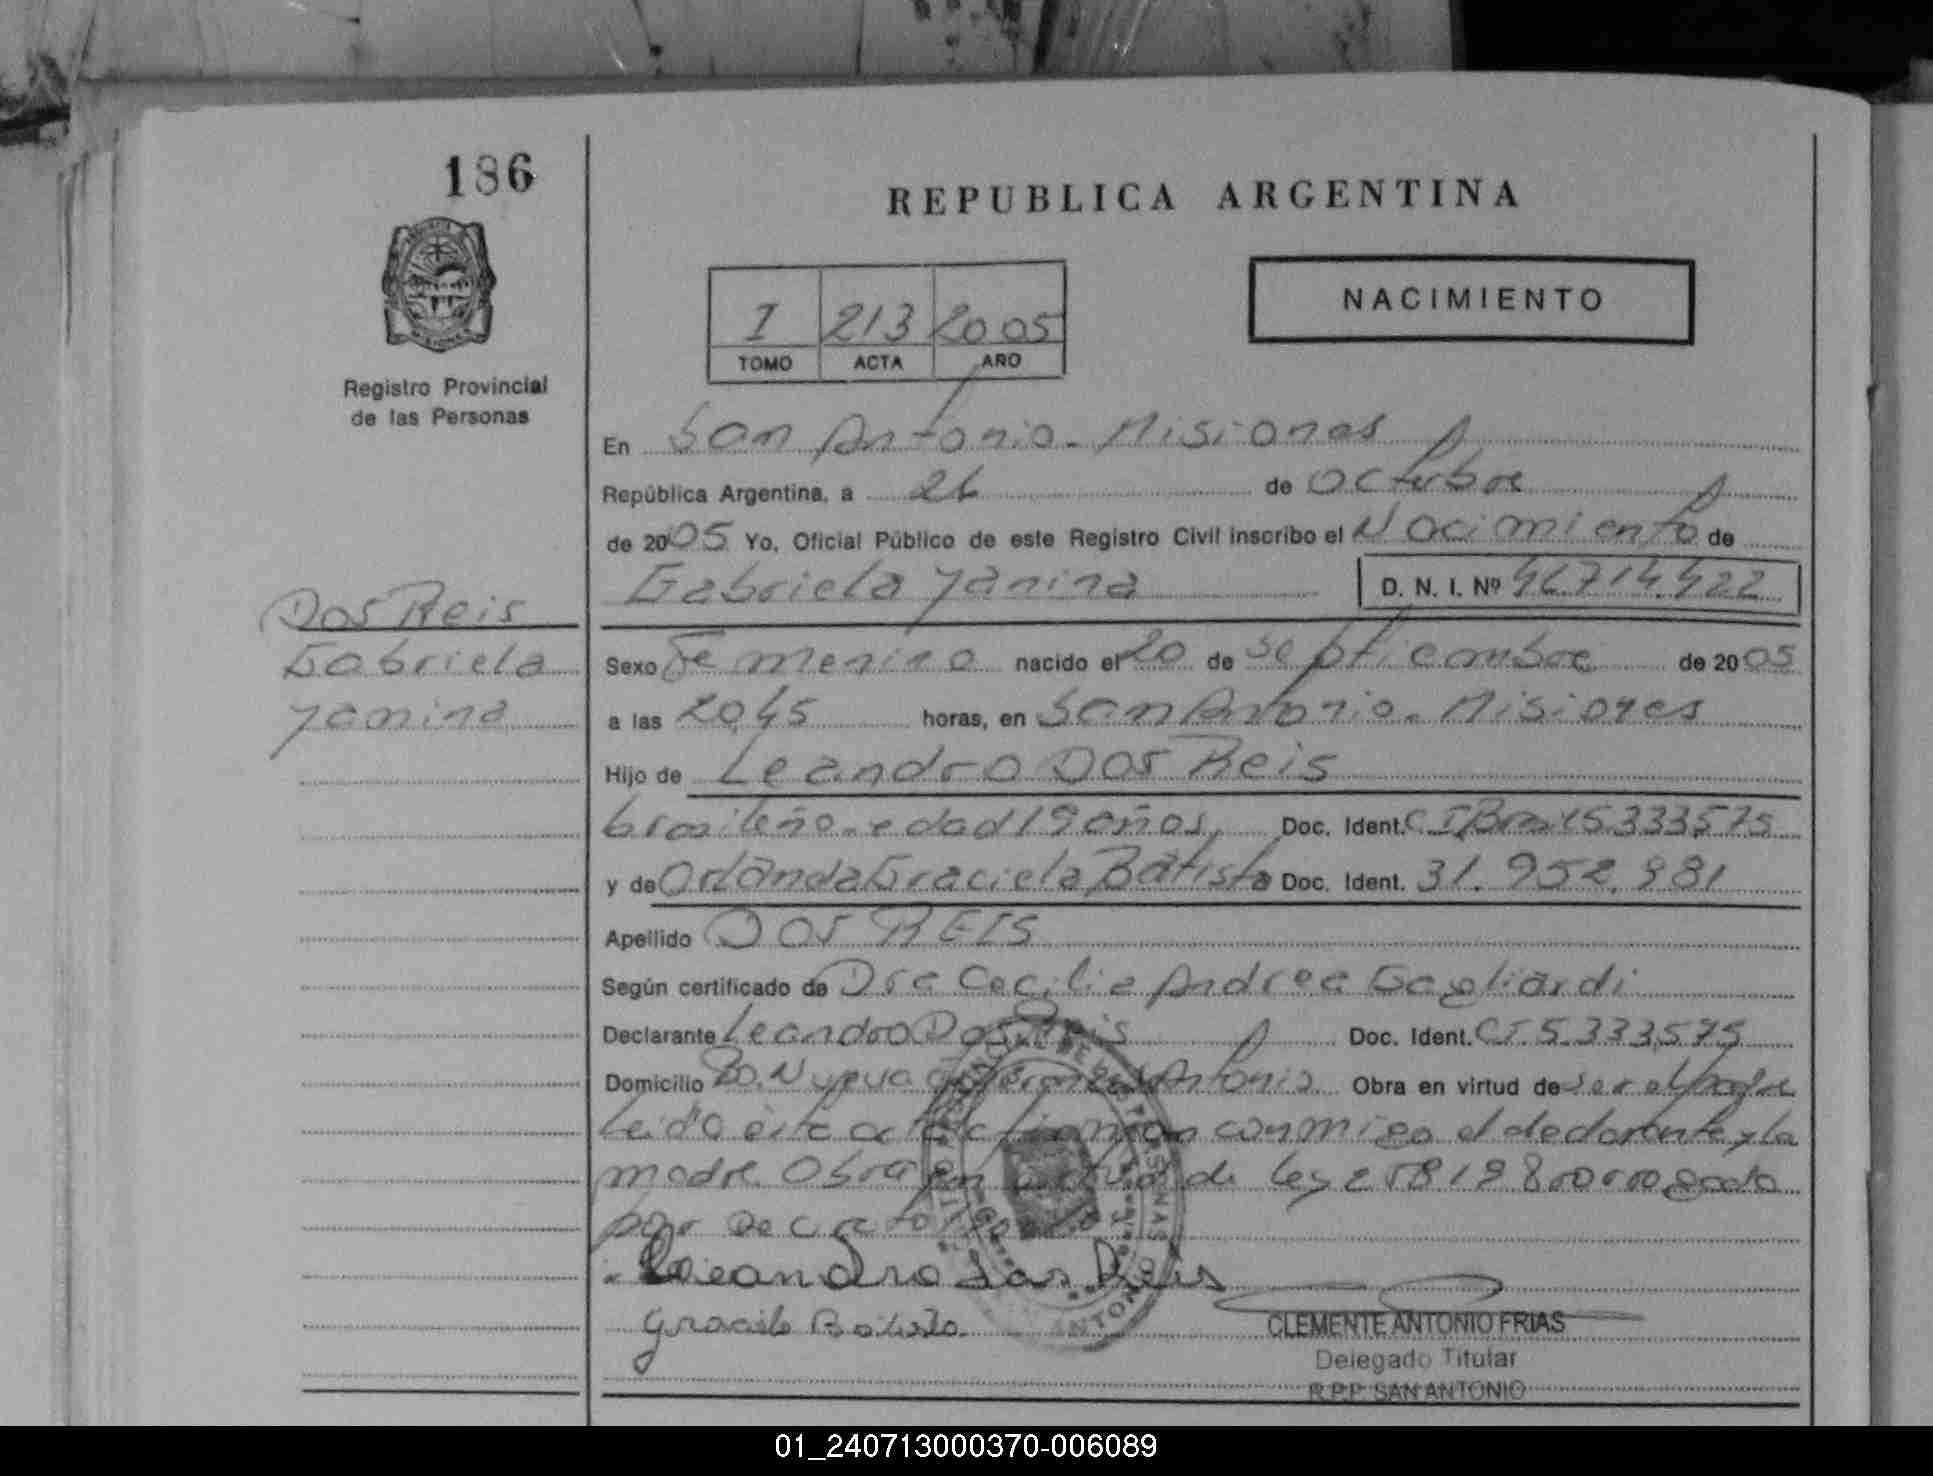 186
REPUBLICA ARGENTINA
NACIMIENTO
I 213 2005
TOMO ACTA AÑO
Registro Provincial
de las Personas
En San Antonio - Misiones
República Argentina, a 26 de Octubre
de 2005 Yo, Oficial Público de este Registro Civil inscribo el Nacimiento de
Gabriela Yanina D. N. I. Nº 46.714.422
Dos Reis
Gabriela
Yanina
Sexo Femenino nacido el 20 de septiembre de 2005
a las 20,45 horas, en San Antonio - Misiones
Hijo de Leandro Dos Reis
brasileño - edad 19 años, Doc. Ident. CI Bras 5.333.575
y de Orlanda Graciela Batista Doc. Ident. 31.952.981
Apellido DOS REIS
Según certificado de Dra Cecilia Andrea Gagliardi
Declarante Leandro Dos Reis Doc. Ident. CI 5.333.575
Domicilio Bo. Nueva San Antonio Obra en virtud de ser el padre
Leida este acta firman conmigo el declarante y la
madre Obra en virtud de Ley 25819 prorrogada
por Decreto
Leandro dos Reis
Graciela Batista
CLEMENTE ANTONIO FRIAS
Delegado Titular
R.P.P. SAN ANTONIO
01_240713000370-006089